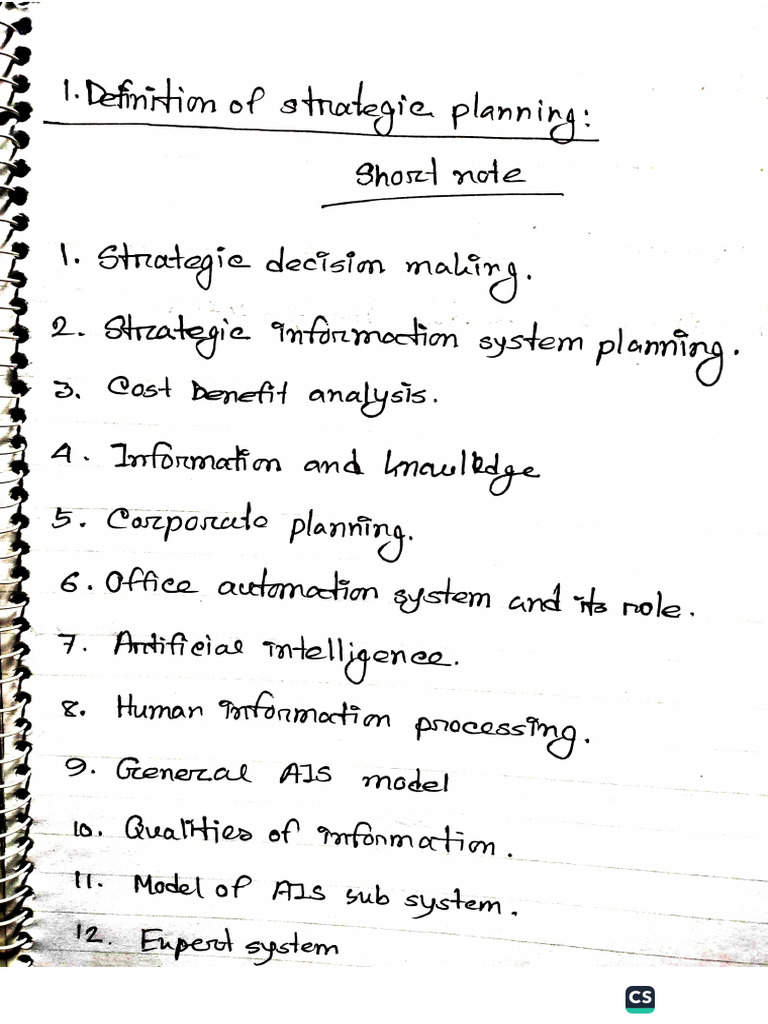 1. Definition of strategic planning:
Short note
1. Strategic decision making.
2. Strategic information system planning.
3. Cost benefit analysis.
4. Information and knowledge
5. Corporate planning.
6. Office automation system and its role.
7. Artificial intelligence.
8. Human information processing.
9. General AIS model
10. Qualities of information.
11. Model of AIS sub system.
12. Expert system
CS